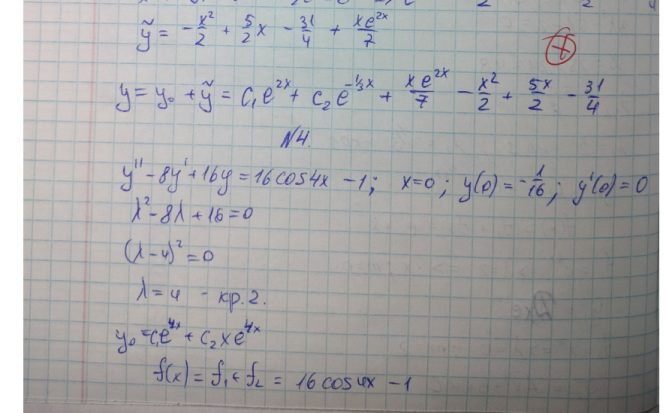 ỹ = -x²/2 + 5/2 x - 31/4 + xe^{2x}/7
y = y₀ + ỹ = C₁e^{2x} + C₂e^{-1/3x} + xe^{2x}/7 - x²/2 + 5x/2 - 31/4
N4.
y'' - 8y' + 16y = 16cos4x - 1; x=0; y(0) = -1/16; y'(0) = 0
λ² - 8λ + 16 = 0
(λ - 4)² = 0
λ = 4 - кр. 2.
y₀ = C₁e^{4x} + C₂xe^{4x}
f(x) = f₁ + f₂ = 16cos4x - 1